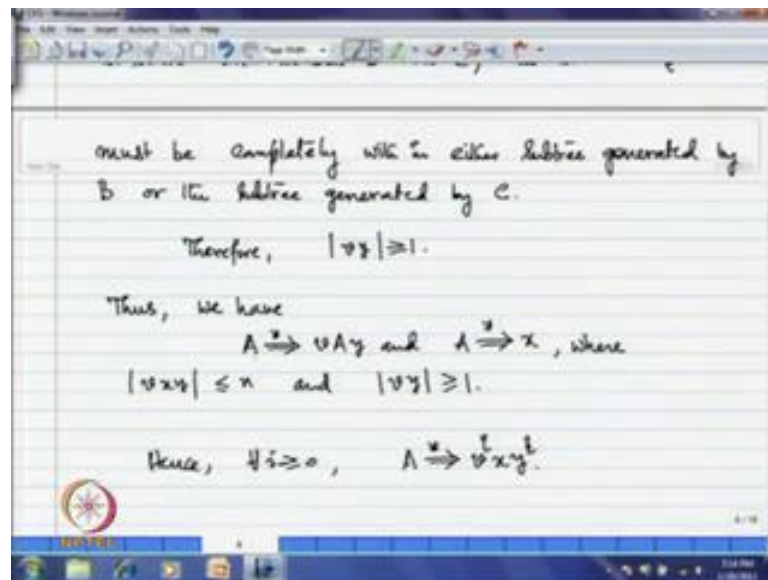 must be completely with in either subtree generated by
B or the subtree generated by C.
Therefore, |vy| ≥ 1.
Thus, we have
A ⇒* vAy and A ⇒* x, where
|vxy| ≤ n and |vy| ≥ 1.
Hence, ∀i ≥ 0, A ⇒* v^i x y^i.
NPTEL